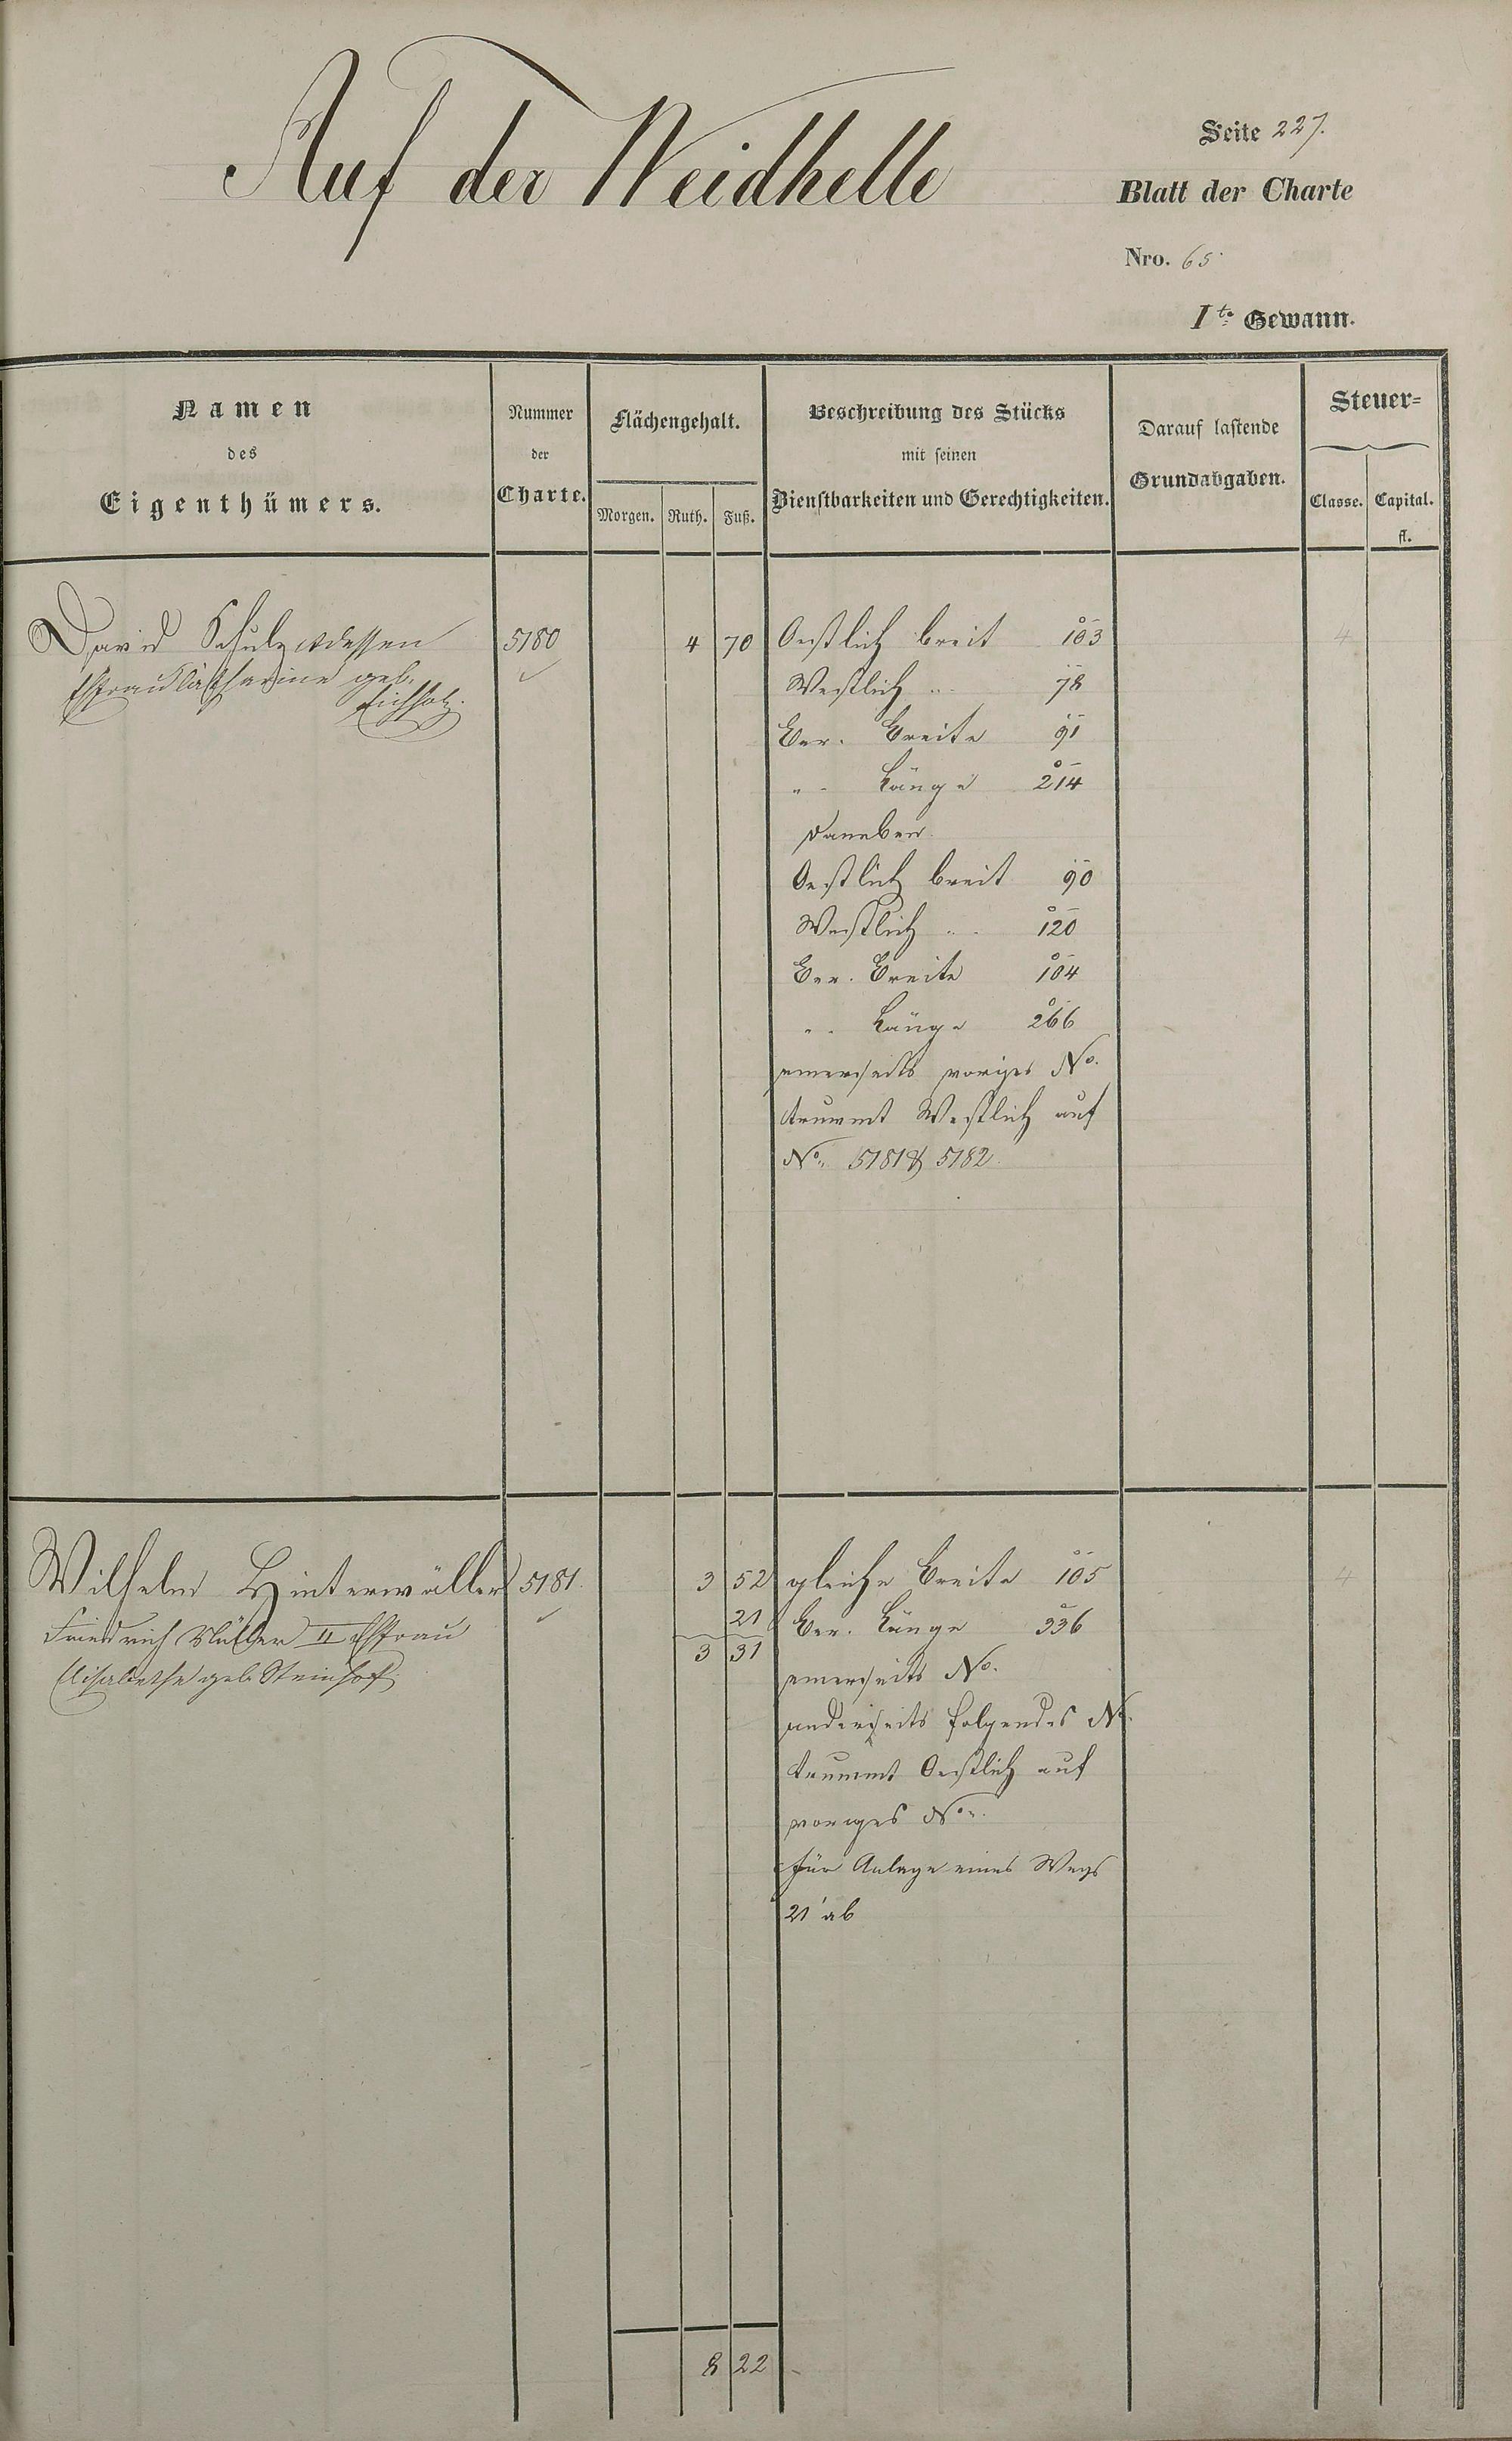 Auf der Weidhelle
Seite 227.
Blatt der Charte
Nro. 65.
I te Gewann.
Namen
des
Eigenthümers.
Nummer
der
Charte.
Flächengehalt.
Morgen. Ruth. Fuß.
Beschreibung des Stücks
mit seinen
Dienstbarkeiten und Gerechtigkeiten.
Darauf lastende
Grundabgaben.
Steuer=
Classe. Capital.
fl.
David Schulz & dessen 5180 4 70 Oestlich breit 103 4
Ehefrau Catharine geb. Westlich " 78
Eichholz.
Ber. Breite 91
" Länge 214
Daneben
Oestlich breit 90
Westlich " 120
Ber. Breite 104
" Länge 266
einerseits voriges No.
trummt Westlich auf
No. 5181 & 5182.
Wilhelm Hinterwäller 5181. 3 52 gleiche Breite 105 4
Friedrich Müller II Ehefrau 21 Ber. Länge 336
Elisabethe geb. Steinhof 3 31
einerseits No.
anderseits folgendes No.
trummt Oestlich auf
voriges No.
für Anlage eines Wegs
21' ab
8 22